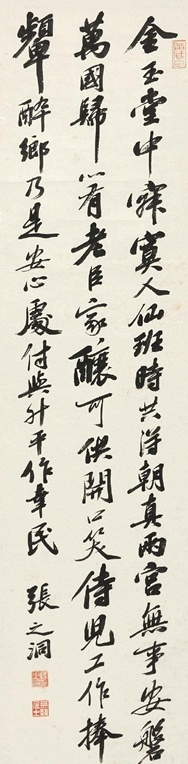 金玉堂中寂寞人仙班時共得朝真兩宮無事安磐
萬國歸心有老臣家釀可供開口笑侍兒工作捧
顰醉鄉乃是安心處付與升平作幸民
張之洞